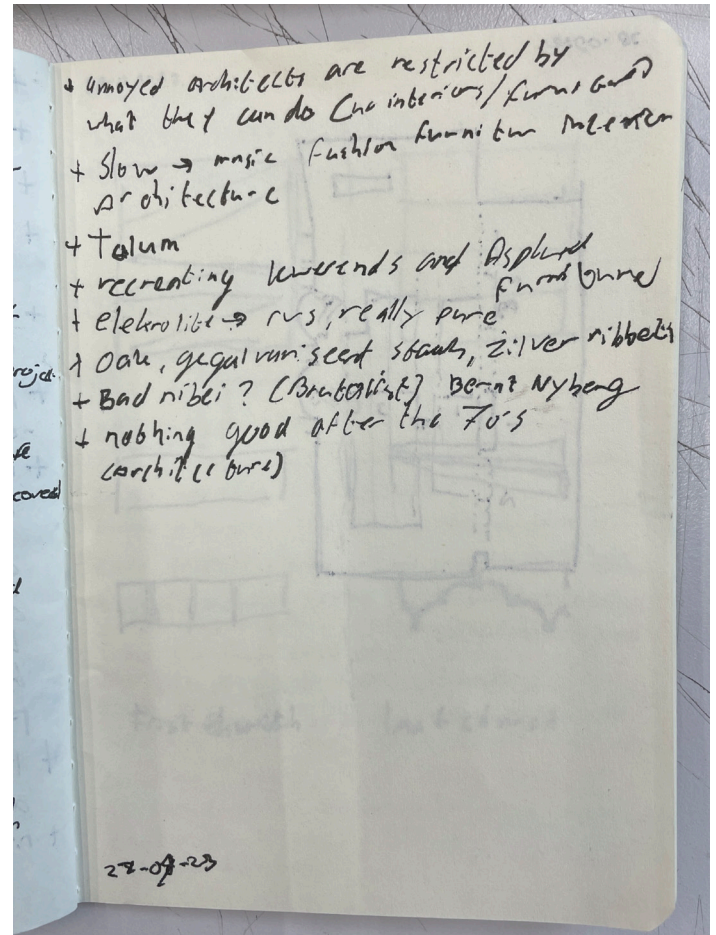 + annoyed architects are restricted by
what they can do (no interiors/furniture)
+ Slow → music fashion furnitur interior
architecture
+ Talum
+ recreating lewerends and Asplund
furniture
+ elektrolite → rvs, really pure
+ Oak, gegalvaniseerd staal, zilver ribbels
+ Bad nibei? (Brutalist) Bernt Nyberg
+ nothing good after the 70's
(architecture)
coverd